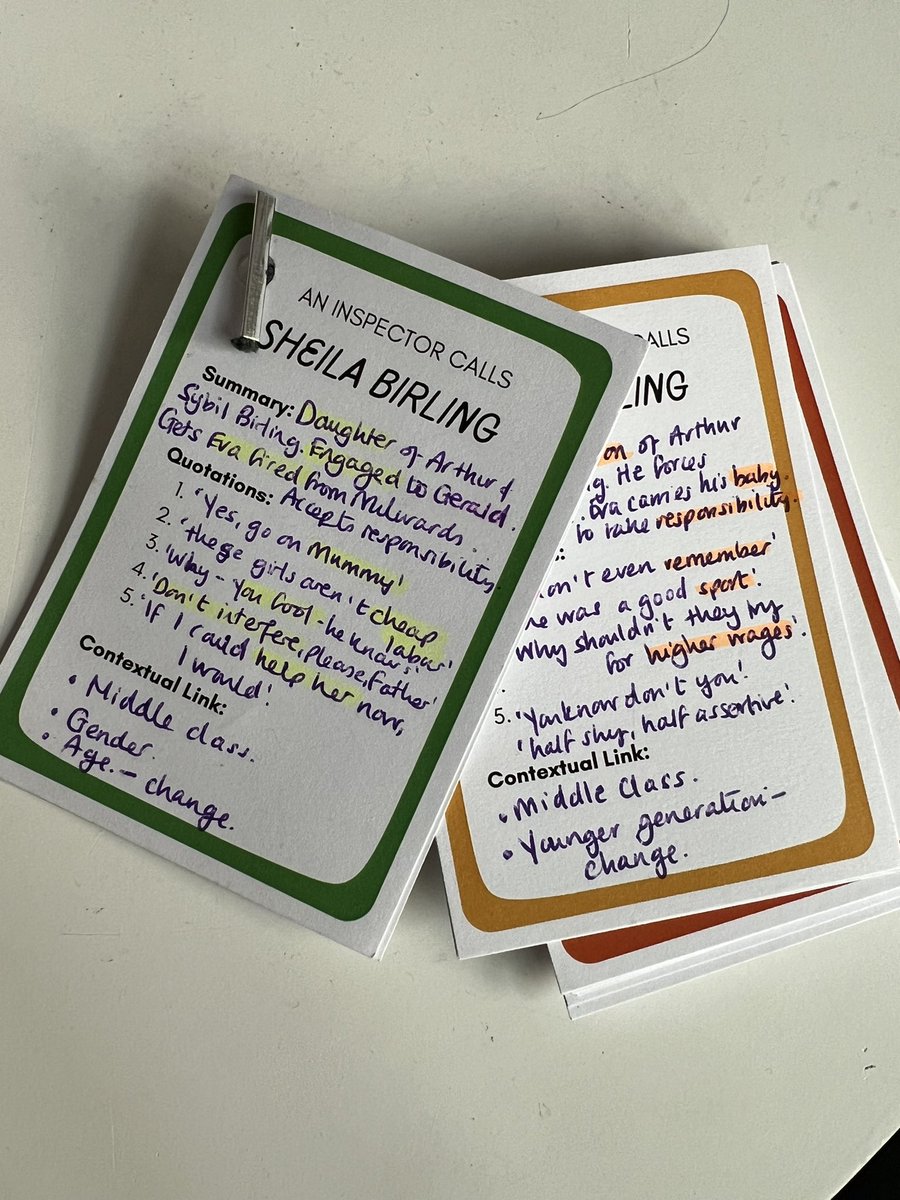 AN INSPECTOR CALLS
SHEILA BIRLING
Summary: Daughter of Arthur &
Sybil Birling. Engaged to Gerald.
Gets Eva fired from Milwards.
Accepts responsibility
Quotations:
1. 'Yes, go on Mummy'
2. 'these girls aren't cheap labour'
3. 'Why - you fool - he knows'
4. 'Don't interfere, please, Father'
5. 'If I could help her now,
I would'.
Contextual Link:
• Middle class.
• Gender.
• Age. - change.
ALLS
LING
on of Arthur
g. He forces
Eva carries his baby.
to take responsibility.
:
on't even remember'
he was a good sport'.
Why shouldn't they try
for higher wages'.
5. 'You know don't you'.
'half shy, half assertive'.
Contextual Link:
• Middle Class.
• Younger generation -
change.